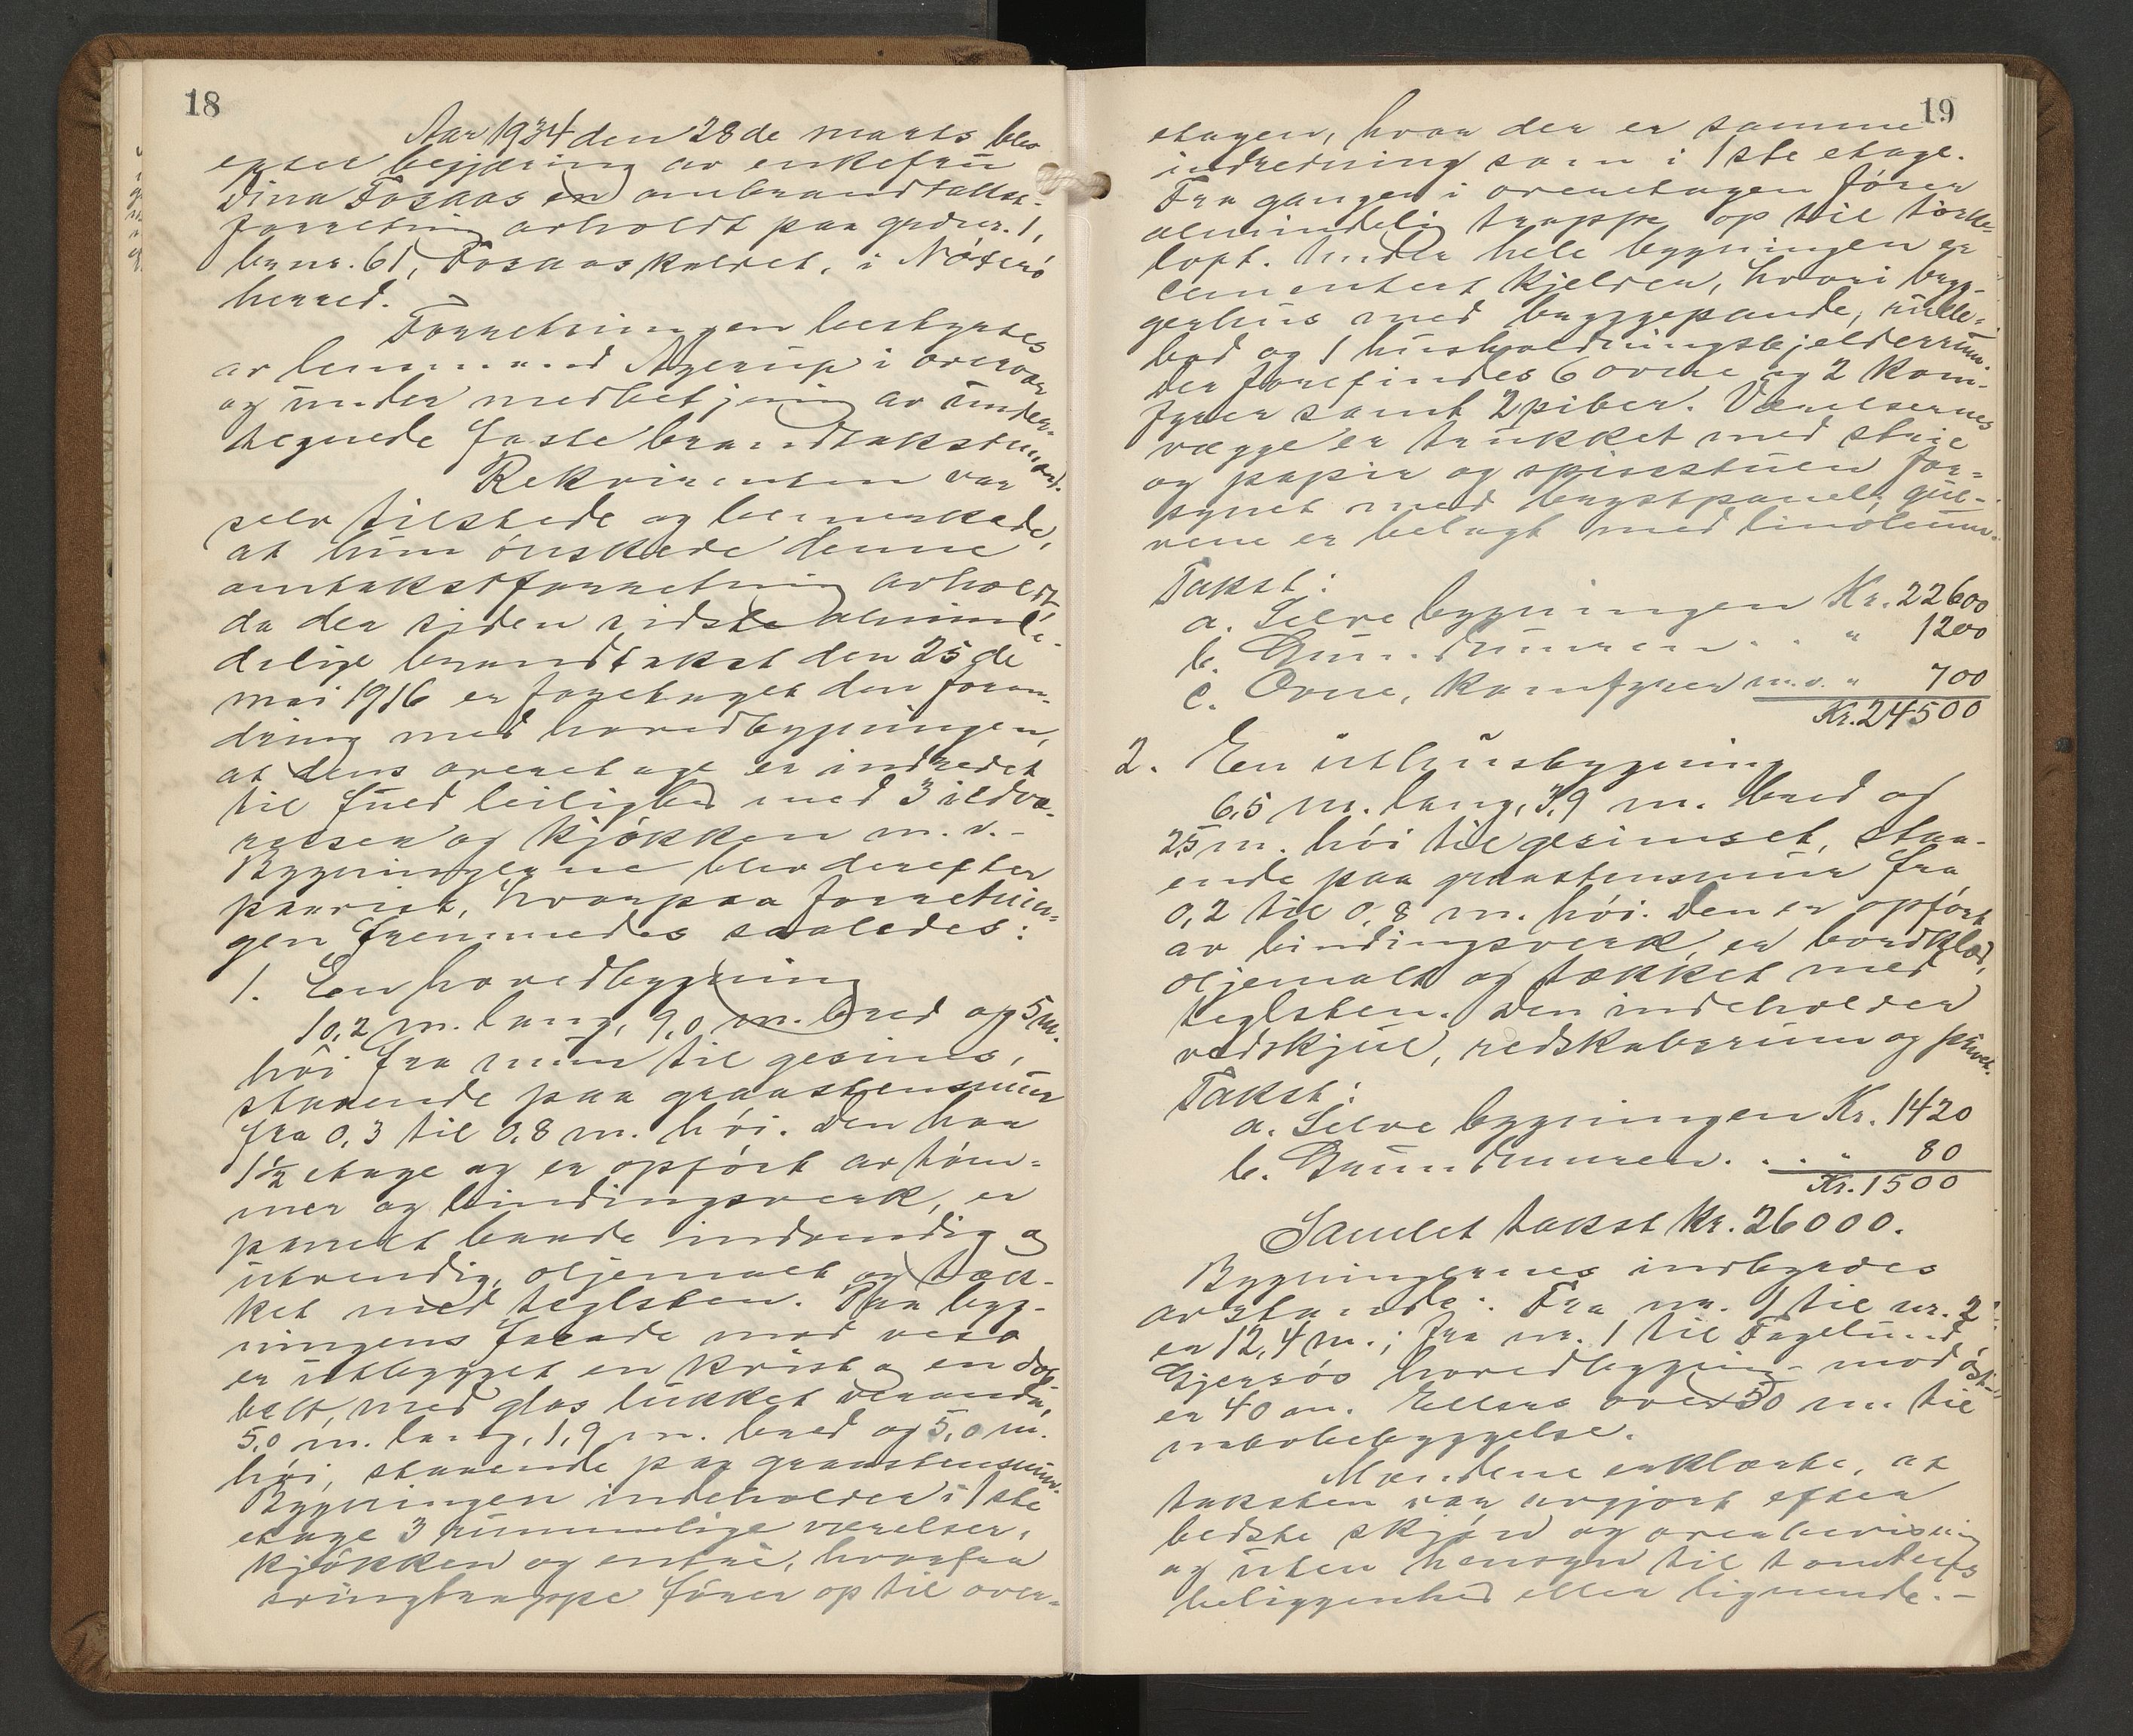 18
Aar 1934 den 28de marts blev
efter begjæring av enkefru
Dina Fosaas en ombrandtakst-
forretning avholdt paa grdnr. 1,
brnr. 61, Fosaaskollet, i Nøtterø
herred.
Forretningen bestyrtes
av lensmand Agerup i overvær
og under medbetjening av under-
tegnede faste brandtakstmænd.
Rekvirenten var
selv tilstede og bemerkede,
at hun ønskede denne
omtakstforretning avholdt,
da der siden sidste almin-
delige brandtakst den 25de
mai 1916 er foretaget den foran-
dring med hovedbygningen,
at dens overetage er indredet
til fuld leilighed med 3 ildvæ-
relser og kjøkken m.v. -
Bygningerne blev derefter
paavist, hvorpaa forretnin-
gen fremmedes saaledes:
1. En hovedbygning
10,2 m. lang, 9,0 m. bred og 5 m.
høi fra mur til gesims,
staaende paa graastensmur
fra 0,3 til 0,8 m. høi. Den har
1½ etage og er opført av tøm-
mer og bindingsverk, er
panelt baade indvendig og
utvendig, oljemalt og tæk-
ket med teglsten. Paa byg-
ningens facade mod vest
er utbygget en kvist og en dob-
belt, med glas lukket veranda,
5,0 m. lang, 1,9 m. bred og 5,0 m.
høi, staaende paa graastensmur.
Bygningen indeholder i 1ste
etage 3 rummelige værelser,
kjøkken og entré, hvorfra
svingtrappe fører op til over-
19
etagen, hvor der er samme
indredning som i 1ste etage.
Fra gangen i overetagen fører
almindelig trappe op til tørke-
loft. Under hele bygningen er
cementert kjelder, hvori bryg-
gerhus med bryggepande, rulle-
bod og 1 husholdningskjelderrum.
Der forefindes 6 ovne og 2 kom-
fyrer samt 2 piber. Værelsernes
vægge er trukket med strie
og papir og spisestuen for-
synet med brystpanel; gul-
vene er belagt med linoleum.
Takst:
a. Selve bygningen Kr. 22600
b. Grundmuren . . " 1200
c. Ovne, komfyrer m.v. " 700
Kr. 24500
2. En uthusbygning
6,5 m. lang, 3,9 m. bred og
2,5 m. høi til gesimset, staa-
ende paa graastensmur fra
0,2 til 0,8 m. høi. Den er opført
av bindingsverk, er bordklæd,
oljemalt og tækket med
teglsten. Den indeholder
vedskjul, redskabsrum og privet.
Takst:
a. Selve bygningen Kr. 1420
b. Grundmuren . . . " 80
Kr. 1500
Samlet takst Kr. 26000.
Bygningernes indbyrdes
avstande: Fra nr. 1 til nr. 2
er 12,4 m.; fra nr. 1 til Fagelund
hovedbygning mod øst
er 40 m. Ellers over 50 m. til
nabobebyggelse.
Mændene erklærte, at
taksten var avgjort efter
bedste skjøn og overbevisning
og uten hensyn til tomtens
beliggenhed eller lignende. -